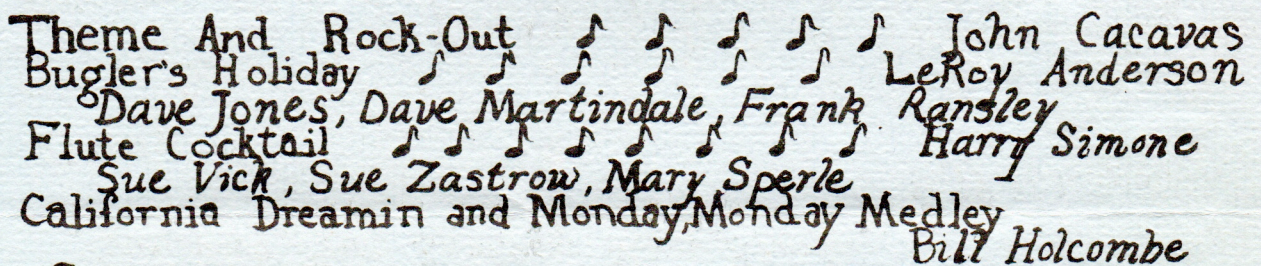 Theme And Rock-Out ♪ ♪ ♪ ♪ ♪ John Cacavas
Bugler's Holiday ♪ ♪ ♪ ♪ ♪ ♪ LeRoy Anderson
Dave Jones, Dave Martindale, Frank Ransley
Flute Cocktail ♪ ♪ ♪ ♪ ♪ ♪ ♪ ♪ Harry Simone
Sue Vick, Sue Zastrow, Mary Sperle
California Dreamin and Monday,Monday Medley
Bill Holcombe